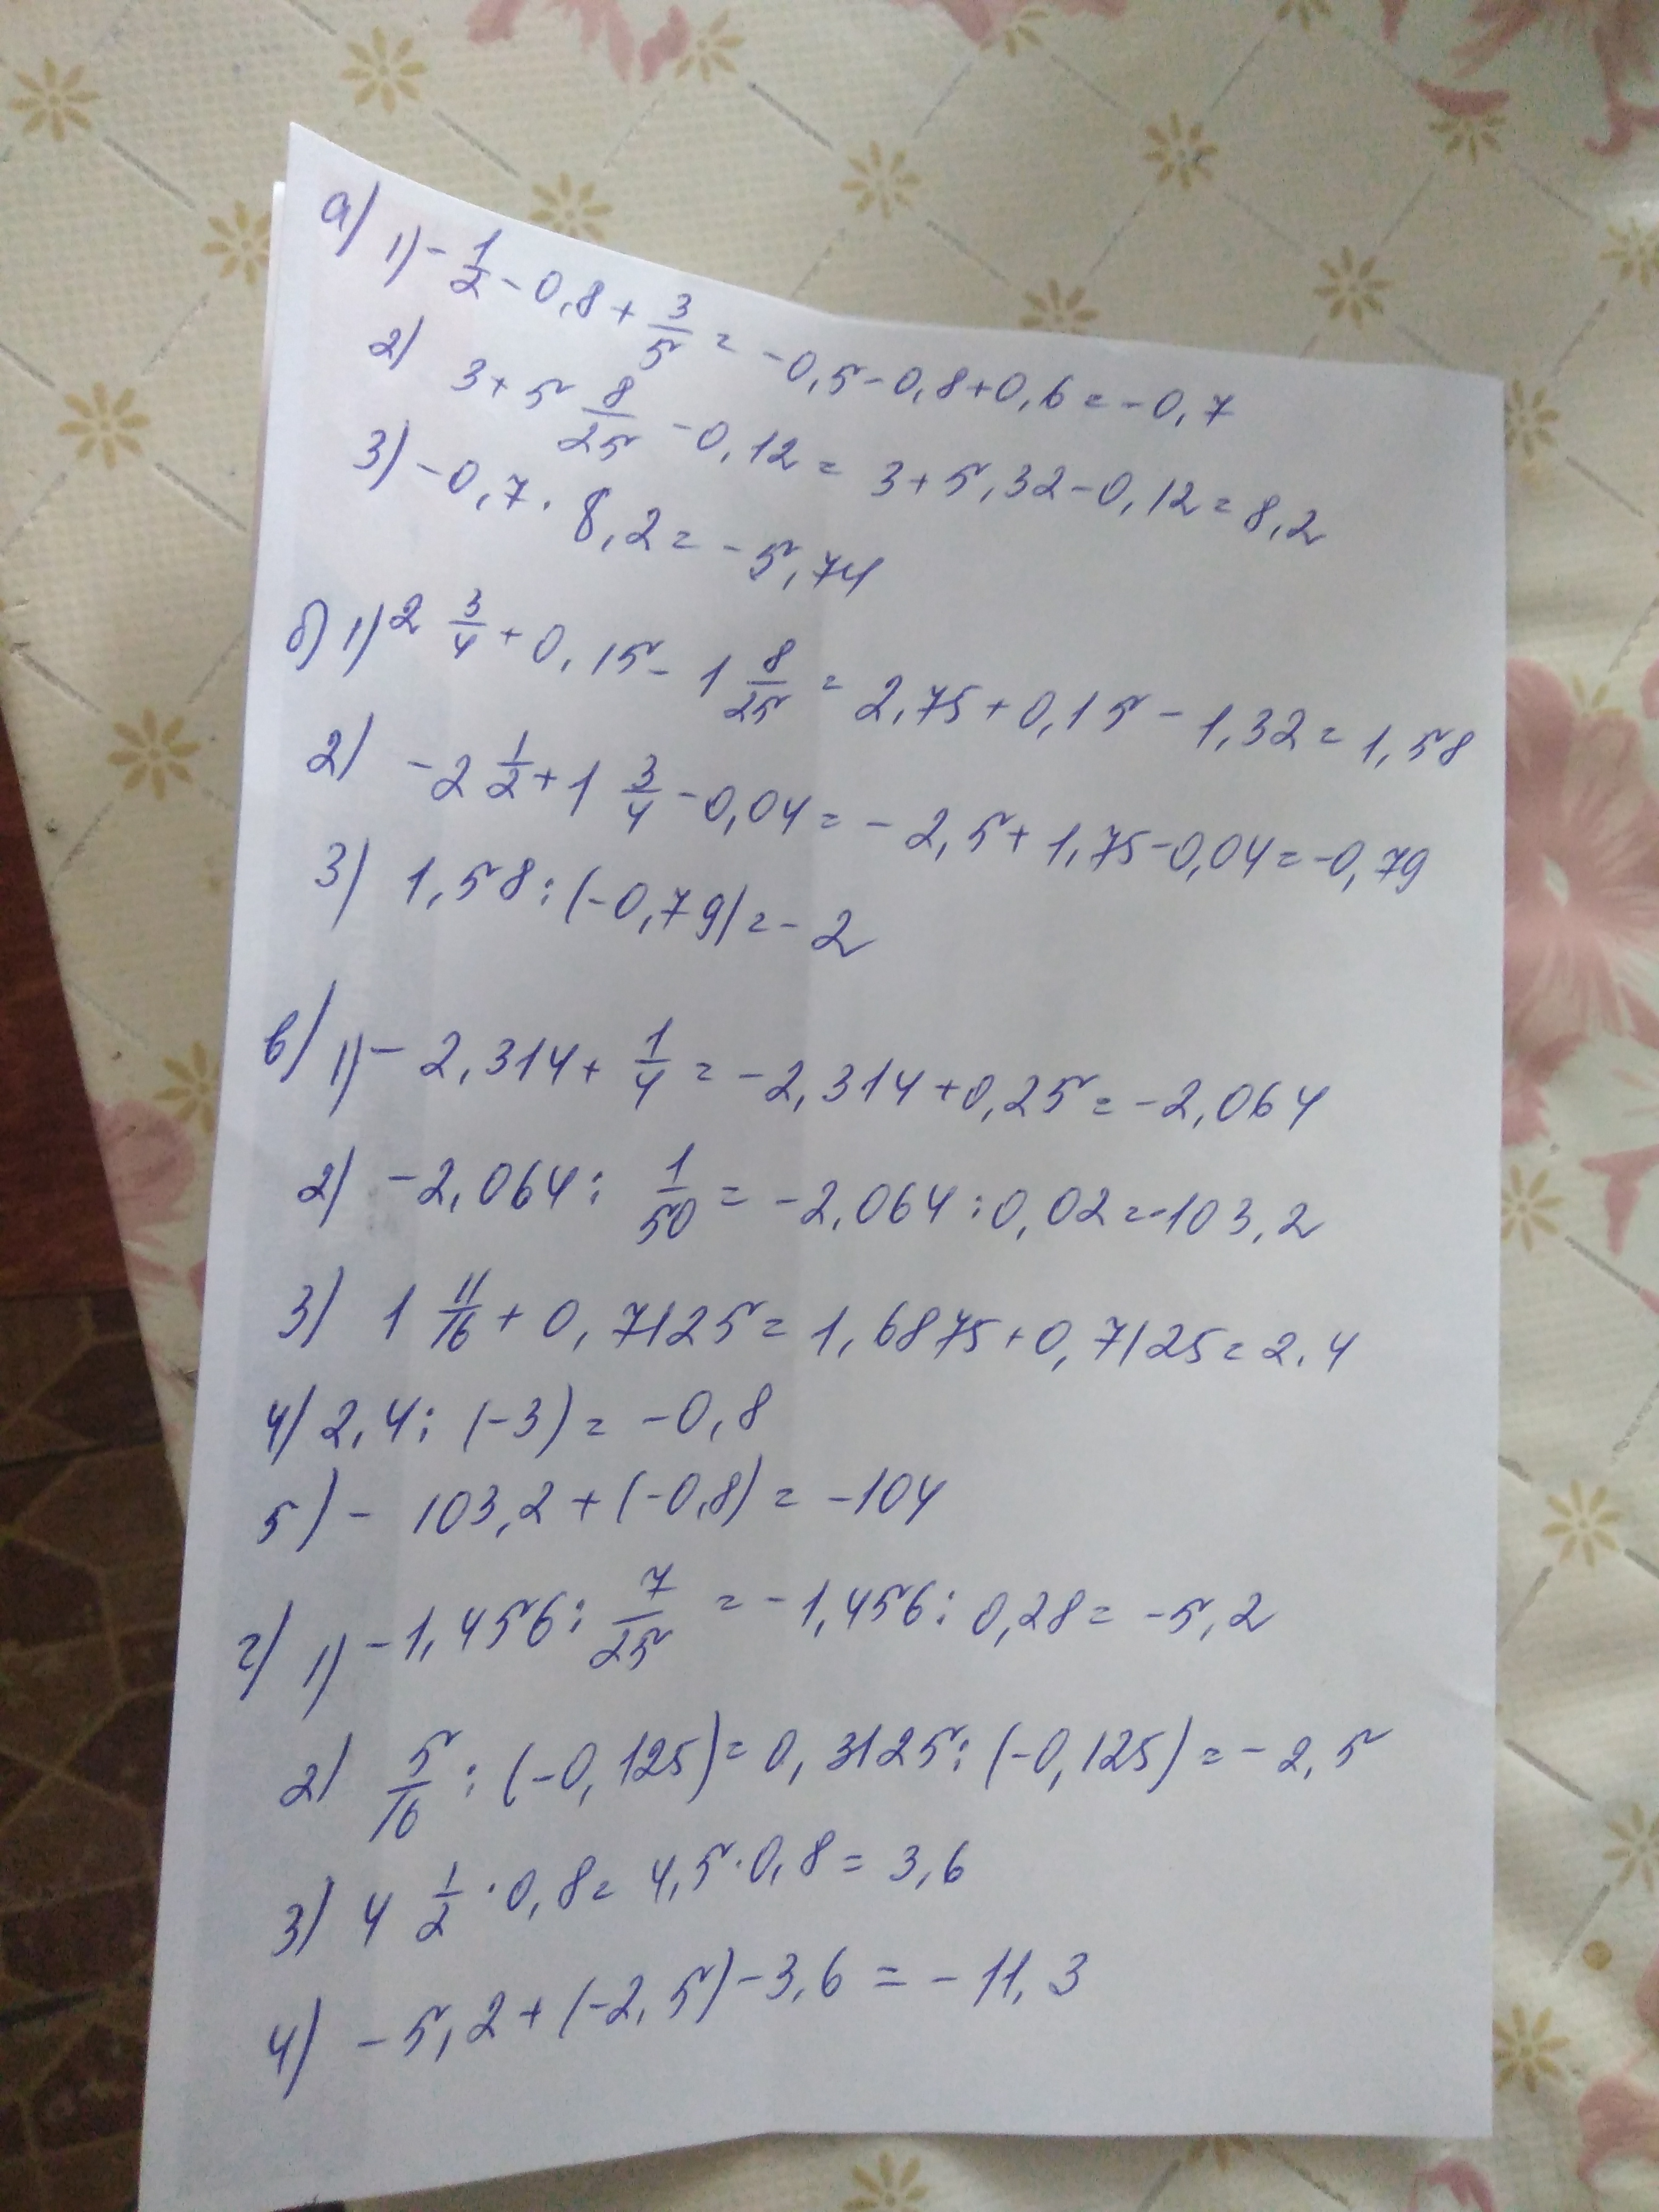 а) 1) - 1/2 - 0,8 + 3/5 = -0,5 - 0,8 + 0,6 = -0,7
2) 3 + 5 8/25 - 0,12 = 3 + 5,32 - 0,12 = 8,2
3) -0,7 · 8,2 = -5,74
б) 1) 2 3/4 + 0,15 - 1 8/25 = 2,75 + 0,15 - 1,32 = 1,58
2) -2 1/2 + 1 3/4 - 0,04 = -2,5 + 1,75 - 0,04 = -0,79
3) 1,58 : (-0,79) = -2
в) 1) -2,314 + 1/4 = -2,314 + 0,25 = -2,064
2) -2,064 : 1/50 = -2,064 : 0,02 = -103,2
3) 1 11/16 + 0,7125 = 1,6875 + 0,7125 = 2,4
4) 2,4 : (-3) = -0,8
5) -103,2 + (-0,8) = -104
г) 1) -1,456 : 7/25 = -1,456 : 0,28 = -5,2
2) 5/16 : (-0,125) = 0,3125 : (-0,125) = -2,5
3) 4 1/2 · 0,8 = 4,5 · 0,8 = 3,6
4) -5,2 + (-2,5) - 3,6 = -11,3